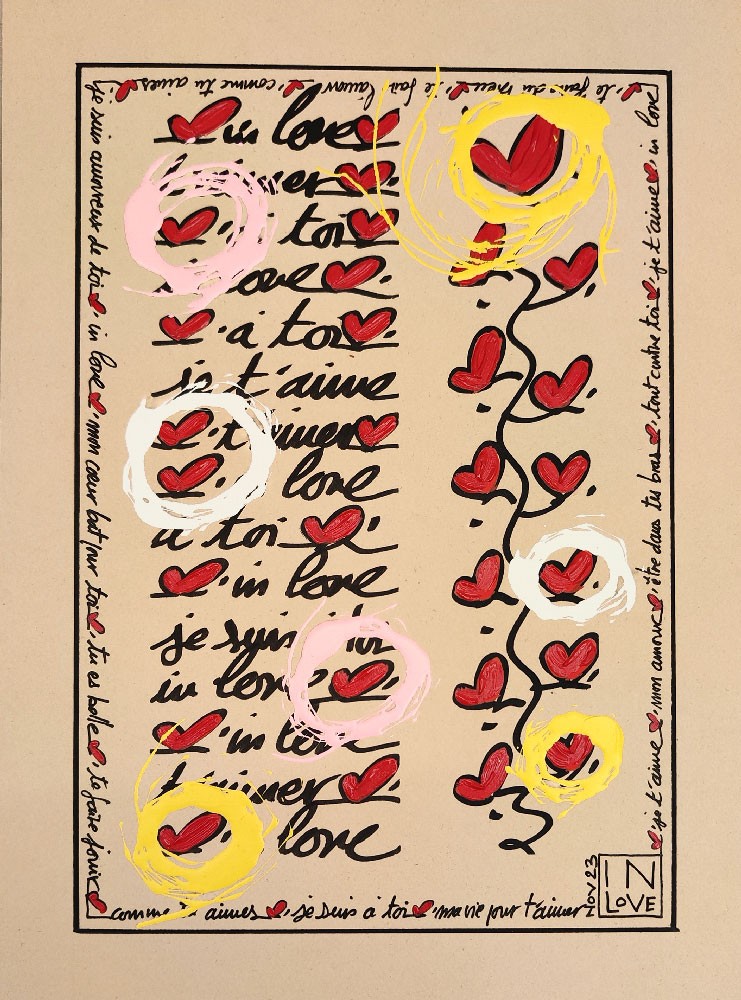 in love
toi
love
à toi
je t'aime
t'aimer
love
à toi
in love
je suis à toi
in love
in love
t'aimer
love
je suis amoureux de toi in love mon cœur bat pour toi tu es belle te faire jouir
comme tu aimes je suis à toi ma vie pour t'aimer
je t'aime mon amour être dans tes bras tout contre toi je t'aime in love
te faire du me faire l'amour comme tu aimes
Nov 23
IN
LOVE